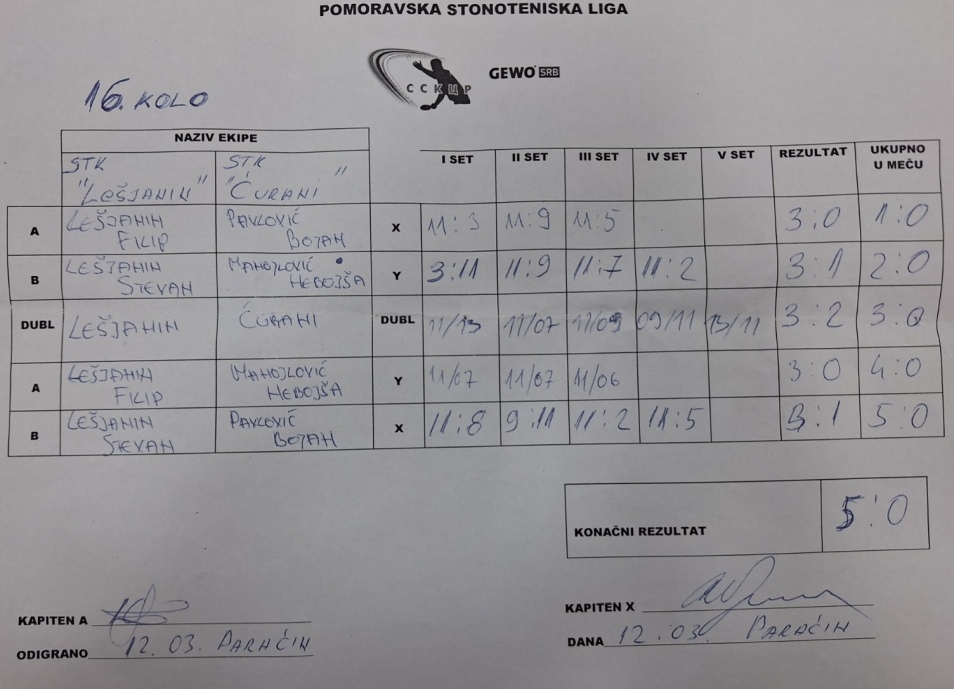 POMORAVSKA STONOTENISKA LIGA
ССКЦР
GEWO SRB
16. KOLO
NAZIV EKIPE
I SET II SET III SET IV SET V SET REZULTAT UKUPNO U MEČU
STK "LEŠJANIN" STK "ĆURANI"
A LEŠJANIN FILIP PAVLOVIĆ BOJAN X 11:3 11:9 11:5 3:0 1:0
B LEŠJANIN STEVAN MANOJLOVIĆ NEBOJŠA Y 3:11 11:9 11:7 11:2 3:1 2:0
DUBL LEŠJANIN ĆURANI DUBL 11/13 11/07 11/09 09/11 13/11 3:2 3:0
A LEŠJANIN FILIP MANOJLOVIĆ NEBOJŠA Y 11/07 11/07 11/06 3:0 4:0
B LEŠJANIN STEVAN PAVLOVIĆ BOJAN X 11:8 9:11 11:2 11:5 3:1 5:0
KONAČNI REZULTAT 5:0
KAPITEN A
KAPITEN X
ODIGRANO 12.03. PARAĆIN
DANA 12.03. PARAĆIN